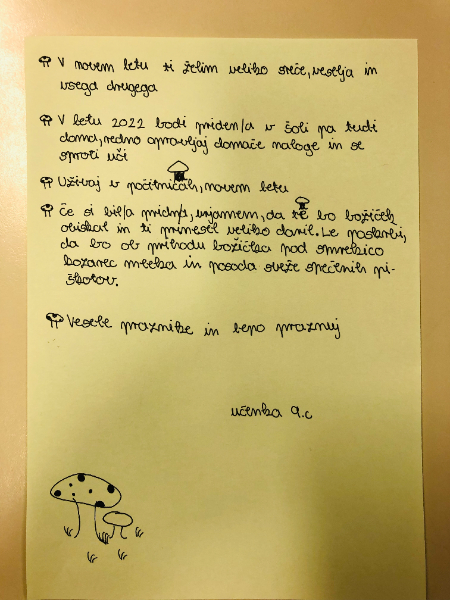 V novem letu ti želim veliko sreče, veselja in
vsega drugega
V letu 2022 bodi priden/a v šoli pa tudi
doma, redno opravljaj domače naloge in se
sproti uči
Uživaj v počitnicah, novem letu
Če si bil/a pridna, verjamem, da te bo božiček
obiskal in ti prinesel veliko daril. Le poskrbi,
da bo ob prihodu božička pod smrekico
kozarec mleka in posoda sveže spečenih pi-
škotov.
Vesele praznike in lepo praznuj
učenka 9.c